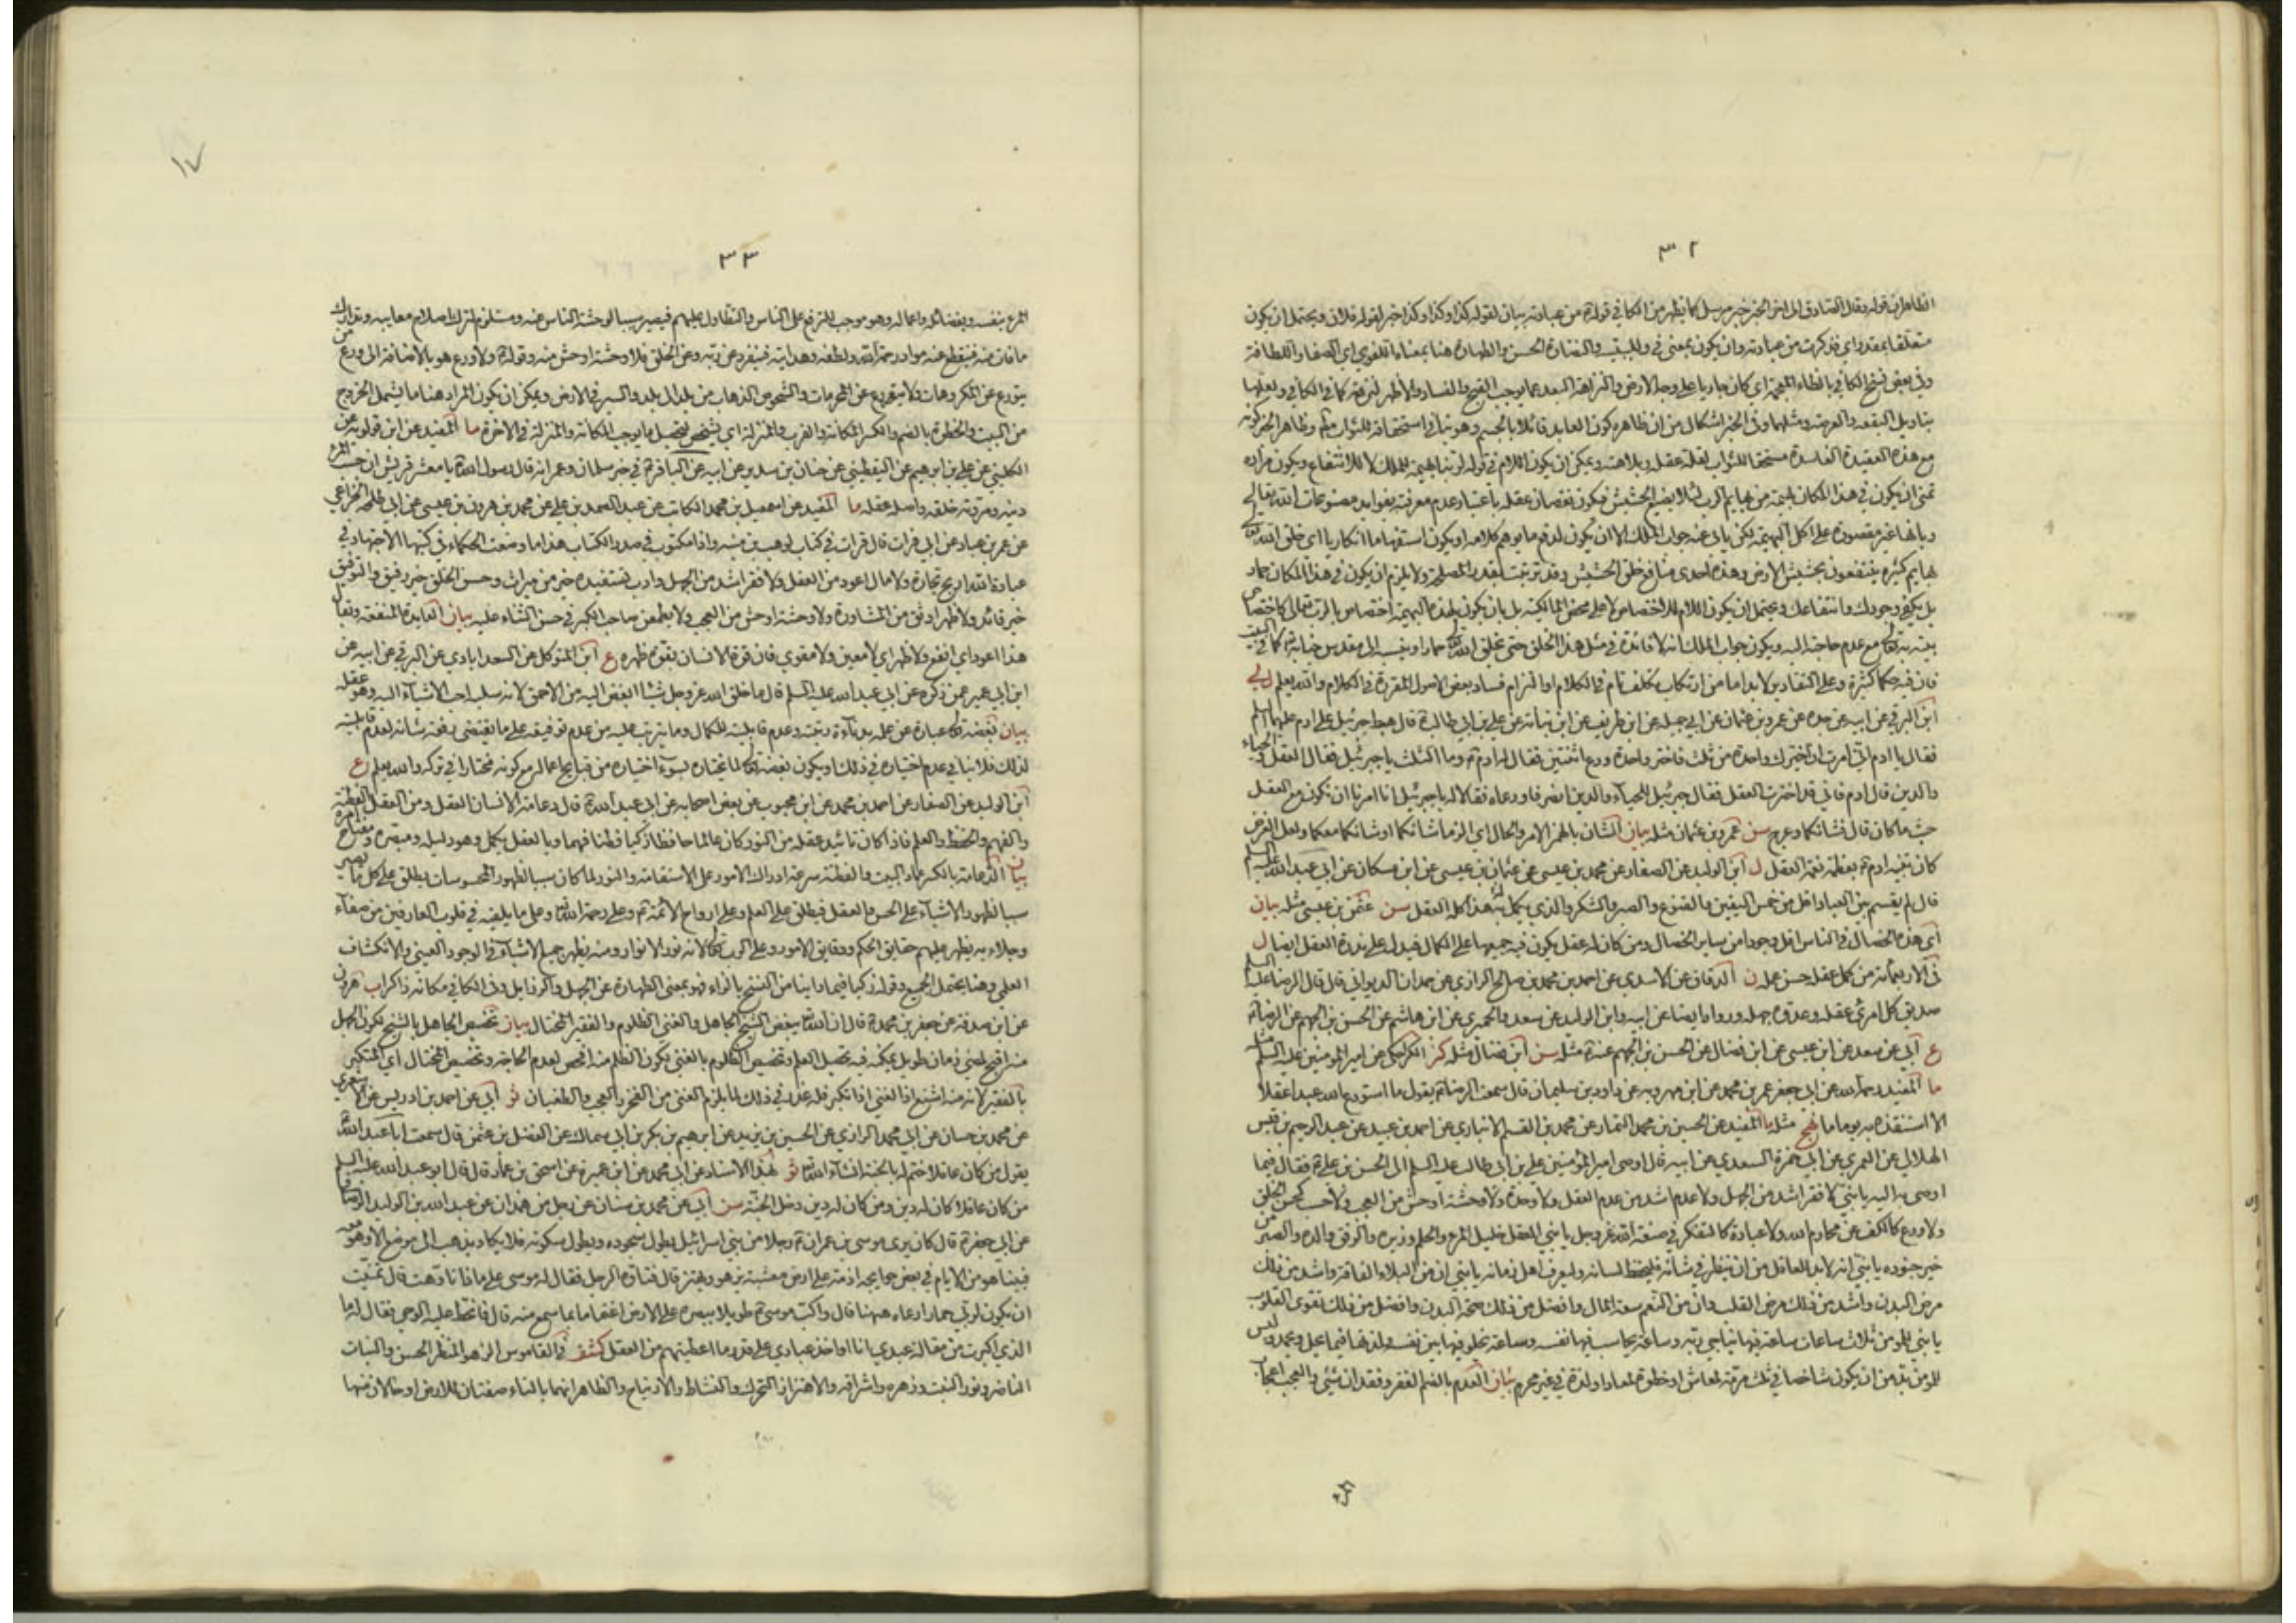 ٣٢
الظاهر ان قوله وقال الصادق الى اخر الخبر خبر مرسل كما يظهر من الكافي قوله من عبادته بيان لقوله كذا وكذا وكذا خبر لقوله فلان ويحتمل ان يكون
متعلقا بمقدر اي فذكرت من عبادته وان يكون بمعنى في والنضارة الحسن والطهارة هنا بمعناه اللغوي اي الصفا واللطافة
وفي بعض نسخ الكافي بالظاء المعجمة اي كان جاريا على وجه الارض والنزاهة البعد عما يوجب القبح والفساد والاظهر لنزهة كما في الكافي ولعلها
بتاويل البقعة والعرصة ومثلهما وفي الخبر اشكال من ان ظاهره كون العابد قائلا بالجسم وهو ينافي استحقاقه للثواب مطلقا وظاهر الخبر كونه
مع هذه العقيدة الفاسدة مستحق للثواب لقلة عقله وبلاهته ويمكن ان يكون اللام في قوله لربنا بهيمة للملك لا للانتفاع ويكون مراده
تمني ان يكون في هذا المكان بهيمة من بهايم الرب لئلا يضيع الحشيش فيكون نقصان عقله باعتبار عدم معرفته بفوايد مصنوعات الله تعالى
وبانها غير مقصورة على اكل البهيمة لكن يابى عنه جواب الملك الا ان يكون لدفع ما يوهم كلامه او يكون استفهاما انكاريا اي خلق الله تعالى
بهايم كثيرة ينتفعون بحشيش الارض وهذه احدى منافع خلق الحشيش وقد ترتبت بقدر المصلحة ولا يلزم ان يكون في هذا المكان حمار
بل يكفي وجودك وانتفاعك ويحتمل ان يكون اللام للاختصاص لا على محض المالكية بل بان يكون لهذه البهيمة اختصاص بالرب تعالى كاختصاص
بيته به تعالى مع عدم حاجته اليه ويكون جواب الملك انه لا فائدة في مثل هذا الخلق حتى يخلق الله تعالى حمارا وينسبه الى مقدس جنابه كما في البيت
فان فيه حكما كثيرة وعلى التقادير لا بد اما من ارتكاب تكلف تام في الكلام او التزام فساد بعض الاصول المقررة في الكلام والله يعلم ل لي
ابن البرقي عن ابيه عن جده عن عمرو بن عثمان عن ابي جميلة عن ابن طريف عن ابن نباتة عن علي بن ابي طالب قال هبط جبرئيل على ادم عليهما السلم
فقال يا ادم اني امرت ان اخيرك واحدة من ثلث فاختر واحدة ودع اثنتين فقال له ادم وما الثلث يا جبرئيل فقال العقل والحياء
والدين قال ادم فاني قد اخترت العقل فقال جبرئيل للحياء والدين انصرفا ودعاه فقالا له يا جبرئيل انا امرنا ان نكون مع العقل
حيث ما كان قال فشانكما وعرج سن عمرو بن عثمان مثله بيان الشان بالهمز الامر والحال اي الزما شانكما او شانكما معكما ولعل الغرض
كان تنبيه ادم بعظمة نعمة العقل ل ابن الوليد عن الصفار عن محمد بن عيسى عن عثمان بن عيسى عن ابن مسكان عن ابي عبد الله عليه السلم
قال لم يقسم بين العباد اقل من خمس اليقين والقنوع والصبر والشكر والذي يكمل به هذا كله العقل سن عثمن بن عيسى مثله بيان
اي هذه الخصال في الناس اقل وجودا من ساير الخصال ومن كان له عقل يكون فيه جميعها على الكمال فيدل على ندرة العقل ايضا ل
في الاربعمائة من كمل عقله حسن عمله ن الدقاق عن الاسدي عن احمد بن محمد بن صالح الرازي عن حمدان الديواني قال قال الرضا عليه السلم
صديق كل امرئ عقله وعدوه جهله ع ورواه ايضا عن ابيه وابن الوليد عن سعد والحميري عن ابن هاشم عن الحسن بن الجهم عن الرضا
ع ابي عن سعد عن ابن عيسى عن ابن فضال عن الحسن بن الجهم عنه مثله سن ابن فضال مثله كنز الكراجكي عن امير المومنين عليه السلم مثله
ما المفيد رحمه الله عن ابي حفص عمر بن محمد عن ابن مهرويه عن داود بن سليمان قال سمعت الرضا يقول ما استودع الله عبدا عقلا
الا استنقذه به يوما ما نهج مثله ما المفيد عن الحسين بن محمد التمار عن محمد بن القسم الانباري عن احمد بن عبيد عن عبد الرحيم بن قيس
الهلالي عن العمري عن ابي حمزة السعدي عن ابيه قال اوصى امير المؤمنين علي بن ابي طالب عليه السلم الى الحسن بن علي فقال فيما
اوصى به اليه يا بني لا فقر اشد من الجهل ولا عدم اشد من عدم العقل ولا وحدة ولا وحشة اوحش من العجب ولا حسب كحسن الخلق
ولا ورع كالكف عن محارم الله ولا عبادة كالتفكر في صنعة الله عز وجل يا بني العقل خليل المرء والحلم وزيره والرفق والده والصبر من
خير جنوده يا بني انه لا بد للعاقل من ان ينظر في شانه فليحفظ لسانه وليعرف اهل زمانه يا بني ان من البلاء الفاقة واشد من ذلك
مرض البدن واشد من ذلك مرض القلب وان من النعم سعة المال وافضل من ذلك صحة البدن وافضل من ذلك تقوى القلوب
يا بني للمومن ثلاث ساعات ساعة يناجي فيها ربه وساعة يحاسب فيها نفسه وساعة يخلو فيها بين نفسه ولذتها فيما يحل ويحمد وليس
للمومن بد من ان يكون شاخصا في ثلث مرمة لمعاش او خطوة لمعاد او لذة في غير محرم بيان العدم بالضم الفقر وفقدان شيء والعجب اعجاب
المرء
٣٣
١٧
المرء بنفسه وبفضائله واعماله وهو موجب للترفع على الناس والتطاول عليهم فيصير سببا لوحشة الناس عنه ومستلزم لترك اصلاح معايبه وتدارك
ما فات منه فينقطع عنه مواد رحمة الله ولطفه وهدايته فينفرد عن ربه وعن الخلق فلا وحشة اوحش منه وقوله ولا ورع هو بالاضافة الى ورع من
يتورع عن المكروهات ولا يتورع عن المحرمات والشخوص الذهاب من بلد الى بلد والسير في الارض ويمكن ان يكون المراد هنا ما يشمل الخروج
من البيت والخطوة بالضم والكسر المكانة والقرب والمنزلة اي يشخص لتحصيل ما يوجب المكانة والمنزلة في الاخرة ما المفيد عن ابن قولويه عن
الكليني عن علي بن ابرهيم عن اليقطيني عن حنان بن سدير عن ابيه عن الباقر في خبر سلمان وعمر انه قال رسول الله يا معشر قريش ان حسب المرء
دينه ومروته خلقه واصله عقله ما المفيد عن اسمعيل بن محمد الكاتب عن عبد الصمد بن علي عن محمد بن هرون بن عيسى عن ابي طلحة الخزاعي
عن عمر بن عباد عن ابي فرات قال قرات في كتاب لوهب بن منبه واذا مكتوب في صدر الكتاب هذا ما وضعت الحكماء في كتبها الاجتهاد في
عبادة الله اربح تجارة ولا مال اعود من العقل ولا فقر اشد من الجهل وادب تستفيده خير من ميراث وحسن الخلق خير رفيق والتوفيق
خير قائد ولا ظهر اوثق من المشاورة ولا وحشة اوحش من العجب ولا يطمعن صاحب الكبر في حسن الثناء عليه بيان العايدة المنفعة ويقال
هذا اعود اي انفع ولا ظهر اي لا معين ولا مقوي فان قوة الانسان بقوة ظهره ع ابن المتوكل عن السعد ابادي عن البرقي عن ابيه عن
ابن ابي عمير عمن ذكره عن ابي عبد الله عليه السلم قال ما خلق الله عز وجل شيئا ابغض اليه من الاحمق لانه سلبه احب الاشياء اليه وهو عقله
بيان بغضه تعالى عبارة عن علمه بدناءة رتبته وعدم قابليته للكمال وما يترتب عليه من عدم توفيقه على ما يقتضي رفعة شانه لعدم قابليته
لذلك فلا ينافي عدم اختياره في ذلك او يكون بغضه تعالى لما يختاره بسوء اختياره من قبايح اعماله مع كونه مختارا في تركه والله يعلم ع
ابن الوليد عن الصفار عن احمد بن محمد عن ابن محبوب عن بعض اصحابه عن ابي عبد الله قال دعامة الانسان العقل ومن العقل الفطنة
والفهم والحفظ والعلم فاذا كان تائيد عقله من النور كان عالما حافظا زكيا فطنا فهما وبالعقل يكمل وهو دليله ومبصره ومفتاح امره
بيان الدعامة بالكسر عماد البيت والفطنة سرعة ادراك الامور على الاستقامة والنور لما كان سببا لظهور المحسوسات يطلق على كل ما يصير
سببا لظهور الاشياء على الحس والعقل فيطلق على العلم وعلى ارواح الائمة وعلى رحمة الله تعالى وعلى ما يلقيه في قلوب العارفين من صفاء
وجلاء به يظهر عليهم حقايق الحكم ودقايق الامور وعلى الرب تعالى لانه نور الانوار ومنه يظهر جميع الاشياء في الوجود العيني والانكشاف
العلمي وهنا يحتمل الجميع وقوله زكيا فيما راينا من النسخ بالزاء فهو بمعنى الطهارة عن الجهل والرذايل وفي الكافي مكانه ذاكرا ب هرون
عن ابن صدقة عن جعفر بن محمد قال ان الله تعالى يبغض الشيخ الجاهل والغني الظلوم والفقير المختال بيان تخصيص الجاهل بالشيخ لكون الجهل
منه اقبح لمضي زمان طويل يمكنه فيه تحصيل العلم وتخصيص الظلوم بالغني لكون الظلم منه افحش لعدم الحاجة وتخصيص المختال اي المتكبر
بالفقير لانه منه اشنع اذ الغني اذا تكبر فله عذر في ذلك لما يلزم الغنى من الفخر والعجب والطغيان ثو ابي عن احمد بن ادريس عن الاشعري
عن محمد بن حسان عن ابي محمد الرازي عن الحسين بن يزيد عن ابرهيم بن بكر بن ابي سماك عن الفضل بن عثمن قال سمعت ابا عبد الله
يقول من كان عاقلا ختم له بالجنة ان شاء الله تعالى ثو بهذا الاسناد عن ابي محمد عن ابن عميرة عن اسحق بن عمار قال قال ابو عبد الله عليه السلم
من كان عاقلا كان له دين ومن كان له دين دخل الجنة سن ابي عن محمد بن سنان عن رجل من همدان عن عبد الله بن الوليد الوصافي
عن ابي جعفر قال كان يرى موسى بن عمران رجلا من بني اسرائيل يطول سجوده ويطول سكوته فلا يكاد يذهب الى موضع الا وهو معه
فبينا هو من الايام في بعض حوايجه اذ مر على ارض معشبة يزهو ويهتز قال فتاوه الرجل فقال له موسى على ماذا تاوهت قال تمنيت
ان يكون لربي حمار ارعاه ههنا قال واكب موسى طويلا ببصره على الارض اغتماما بما سمع منه قال فانحط عليه الوحي فقال له ما
الذي اكبرت من مقالة عبدي انا اواخذ عبادي على قدر ما اعطيتهم من العقل كشف في القاموس الزهو المنظر الحسن والنبات
الناضر ونور النبت وزهره واشراقه والاهتزاز التحرك والنشاط والارتياح والظاهر انهما بالتاء صفتان للارض او حالان منها